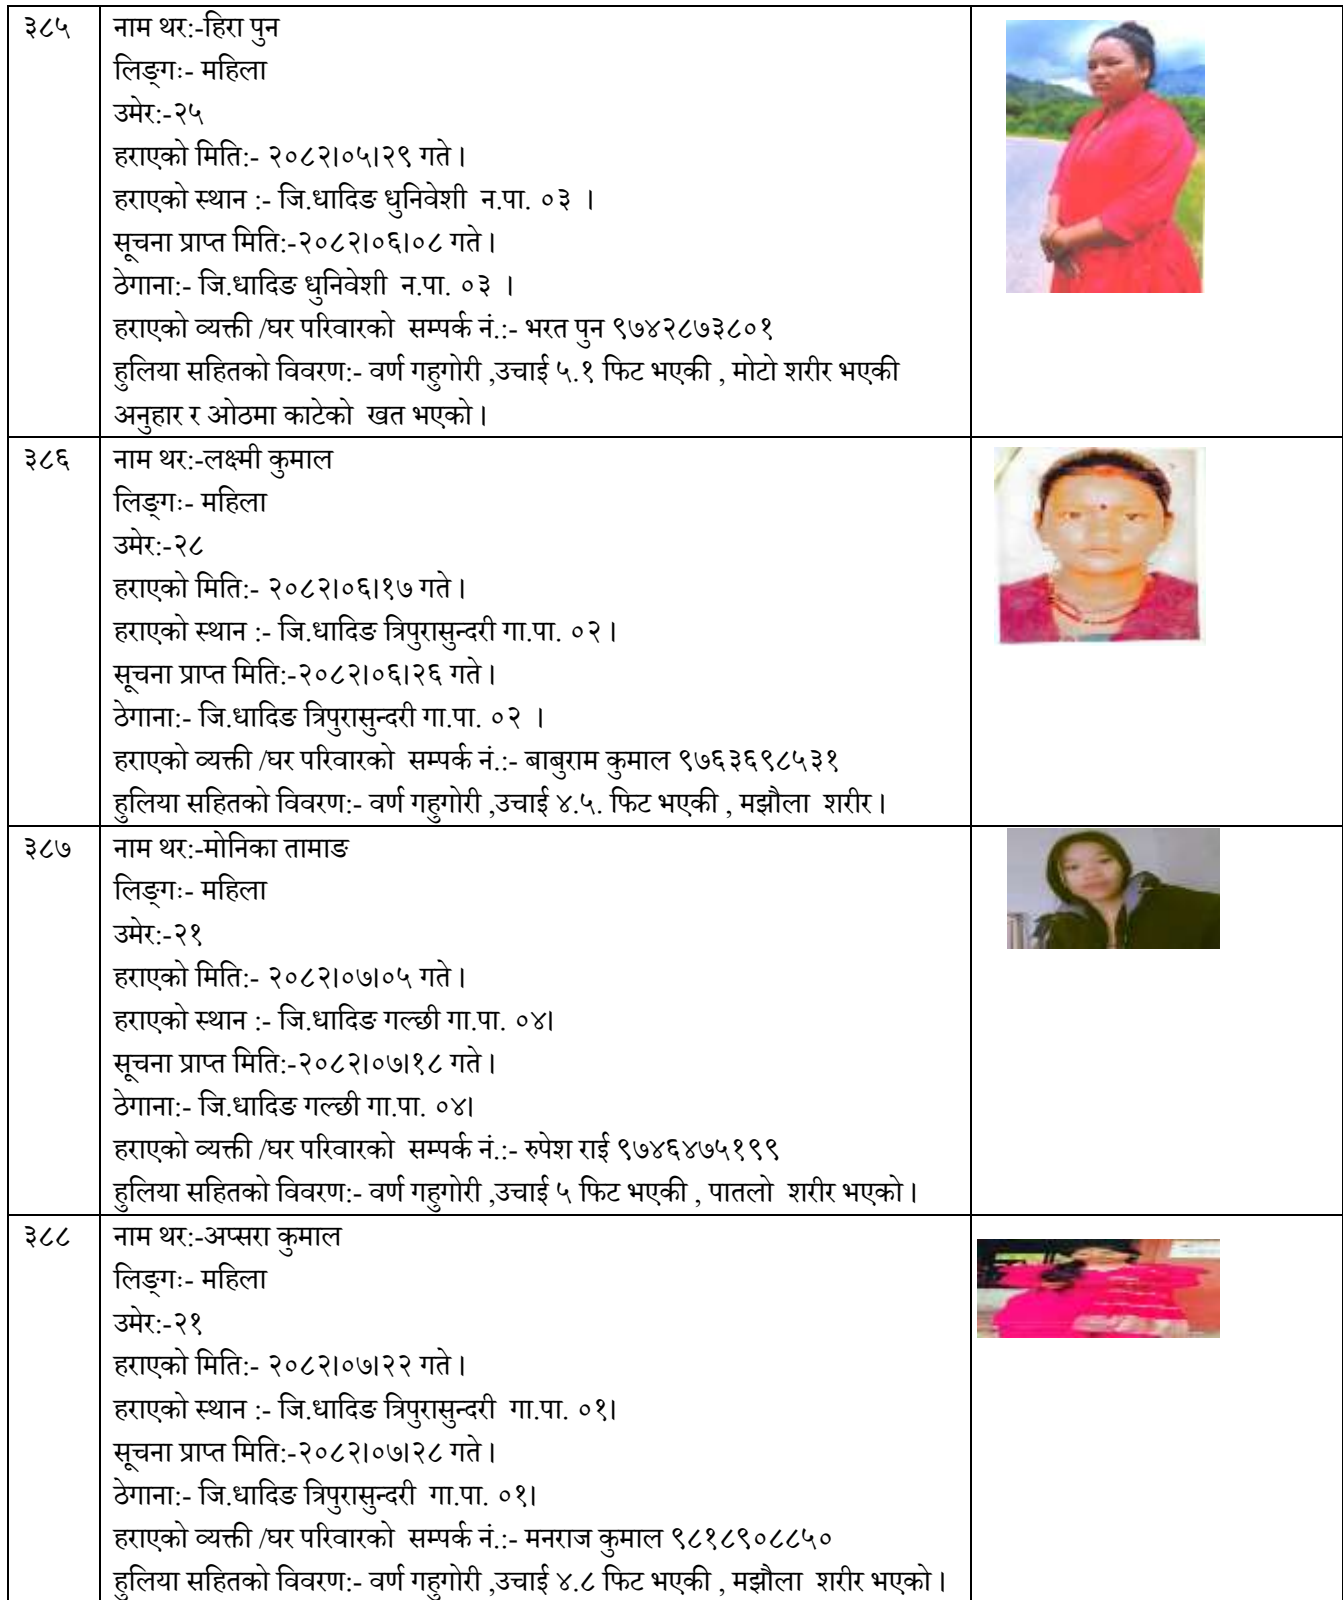 ३८५
नाम थर:-हिरा पुन
लिङ्गः- महिला
उमेर:-२५
हराएको मिति:- २०८२।०५।२९ गते।
हराएको स्थान :- जि.धादिङ धुनिवेशी न.पा. ०३ ।
सूचना प्राप्त मिति:-२०८२।०६।०८ गते।
ठेगाना:- जि.धादिङ धुनिवेशी न.पा. ०३ ।
हराएको व्यक्ती /घर परिवारको सम्पर्क नं.:- भरत पुन ९७४२८७३८०१
हुलिया सहितको विवरण:- वर्ण गहुगोरी ,उचाई ५.१ फिट भएकी , मोटो शरीर भएकी
अनुहार र ओठमा काटेको खत भएको।
३८६
नाम थर:-लक्ष्मी कुमाल
लिङ्गः- महिला
उमेर:-२८
हराएको मिति:- २०८२।०६।१७ गते।
हराएको स्थान :- जि.धादिङ त्रिपुरासुन्दरी गा.पा. ०२।
सूचना प्राप्त मिति:-२०८२।०६।२६ गते।
ठेगाना:- जि.धादिङ त्रिपुरासुन्दरी गा.पा. ०२ ।
हराएको व्यक्ती /घर परिवारको सम्पर्क नं.:- बाबुराम कुमाल ९७६३६९८५३१
हुलिया सहितको विवरण:- वर्ण गहुगोरी ,उचाई ४.५. फिट भएकी , मझौला शरीर।
३८७
नाम थर:-मोनिका तामाङ
लिङ्गः- महिला
उमेर:-२१
हराएको मिति:- २०८२।०७।०५ गते।
हराएको स्थान :- जि.धादिङ गल्छी गा.पा. ०४।
सूचना प्राप्त मिति:-२०८२।०७।१८ गते।
ठेगाना:- जि.धादिङ गल्छी गा.पा. ०४।
हराएको व्यक्ती /घर परिवारको सम्पर्क नं.:- रुपेश राई ९७४६४७५१९९
हुलिया सहितको विवरण:- वर्ण गहुगोरी ,उचाई ५ फिट भएकी , पातलो शरीर भएको।
३८८
नाम थर:-अप्सरा कुमाल
लिङ्गः- महिला
उमेर:-२१
हराएको मिति:- २०८२।०७।२२ गते।
हराएको स्थान :- जि.धादिङ त्रिपुरासुन्दरी गा.पा. ०१।
सूचना प्राप्त मिति:-२०८२।०७।२८ गते।
ठेगाना:- जि.धादिङ त्रिपुरासुन्दरी गा.पा. ०१।
हराएको व्यक्ती /घर परिवारको सम्पर्क नं.:- मनराज कुमाल ९८१८९०८८५०
हुलिया सहितको विवरण:- वर्ण गहुगोरी ,उचाई ४.८ फिट भएकी , मझौला शरीर भएको।